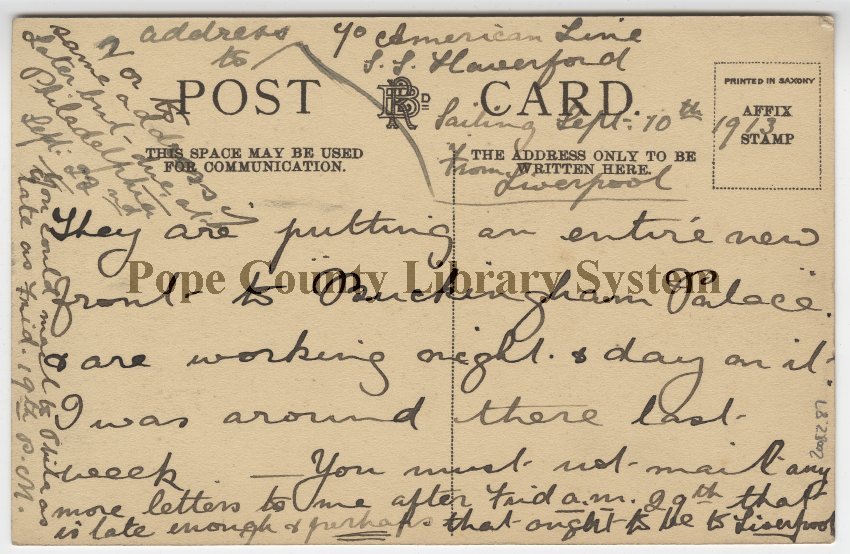 address to
c/o American Line
S.S. Haverford
Sailing Sept. 10th 1913
from Liverpool
POST CARD
THIS SPACE MAY BE USED
FOR COMMUNICATION.
THE ADDRESS ONLY TO BE
WRITTEN HERE.
PRINTED IN SAXONY
AFFIX
STAMP
They are putting an entire new
front to Buckingham Palace
& are working night & day on it.
I was around there last
week — You must not mail any
more letters to me after Frid a.m. 29th that
is late enough & perhaps that ought to be to Liverpool
2 or to
same address
later but due at
Philadelphia
Sept. 22nd
You could mail to Phila as
late as Frid. 19th P.M.
2002.2.87
Pope County Library System